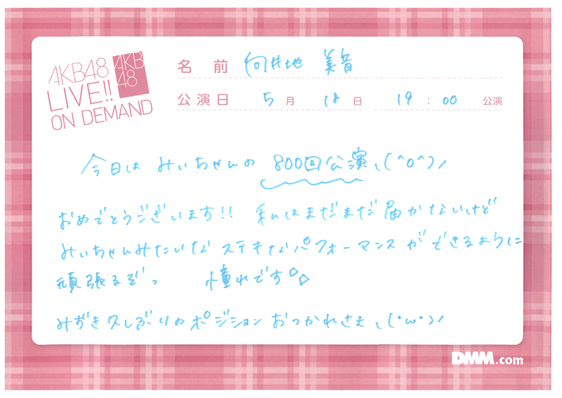 AKB48
LIVE!!
ON DEMAND
AKB
48
名 前 向井地 美音
公演日 5月 18日 19:00 公演
今日は みぃちゃんの 800回公演、(^o^)ノ
おめでとうございます!! 私はまだまだ届かないけど
みぃちゃんみたいな ステキなパフォーマンスができるように
頑張るぞっ 憧れです
みずき久しぶりのポジションおつかれさま、(・ω・)ノ
DMM.com